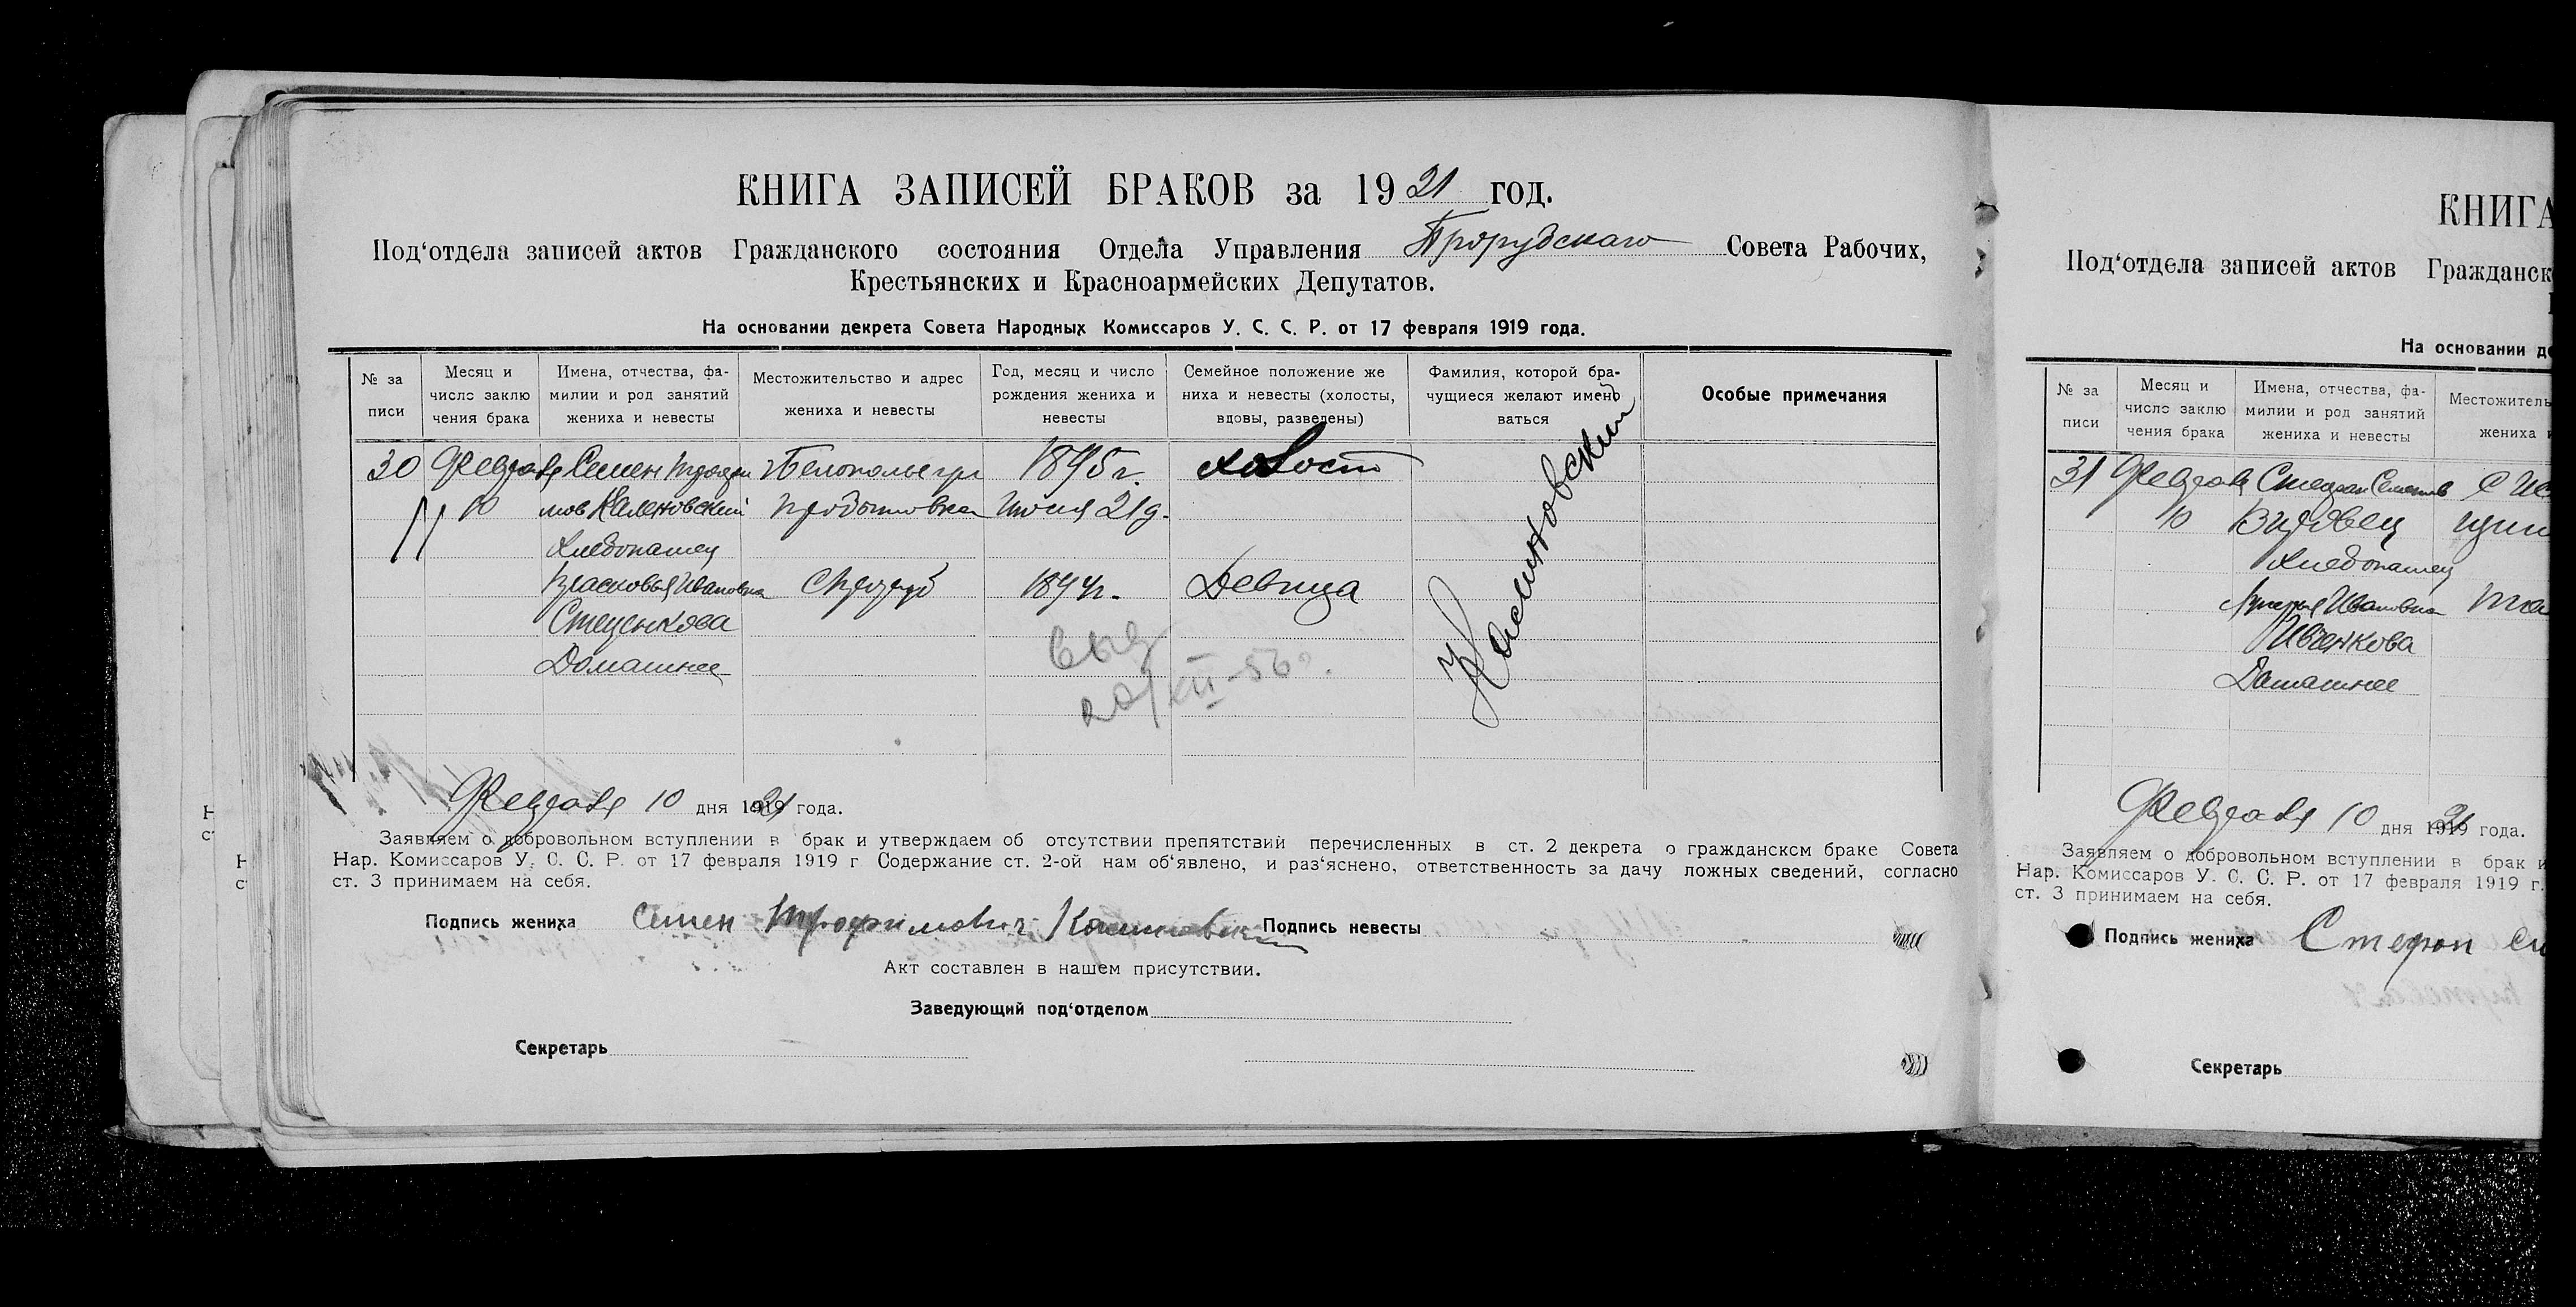 КНИГА ЗАПИСЕЙ БРАКОВ за 1921 год.
Под‘отдела записей актов Гражданского состояния Отдела Управления Прорубскаго Совета Рабочих,
Крестьянских и Красноармейских Депутатов.
На основании декрета Совета Народных Комиссаров У. С. С. Р. от 17 февраля 1919 года.
№ за писи
Месяц и число заклю чения брака
Имена, отчества, фа- милии и род занятий жениха и невесты
Местожительство и адрес жениха и невесты
Год, месяц и число рождения жениха и невесты
Семейное положение же ниха и невесты (холосты, вдовы, разведены)
Фамилия, которой бра- чущиеся желают имено ваться
Особые примечания
30 Февраля Семен Трофи г Белополье 1895 г. холост
10 мов Калиновский июня 21 д.
Хлебопашец
Прасковья Ивановна 1894 г. Девица
Стеценкова
Домашнее
Калиновский
выд
20/XII-56 г.
Февраля 10 дня 1921 года.
Заявляем о добровольном вступлении в брак и утверждаем об отсутствии препятствий перечисленных в ст. 2 декрета о гражданском браке Совета
Нар. Комиссаров У. С. С. Р. от 17 февраля 1919 г Содержание ст. 2-ой нам об‘явлено, и раз‘яснено, ответственность за дачу ложных сведений, согласно
ст. 3 принимаем на себя.
Подпись жениха Семен Трофимович Калиновский Подпись невесты
Акт составлен в нашем присутствии.
Заведующий под‘отделом
Секретарь
КНИГА
Под‘отдела записей актов Гражданск
На основании де
№ за писи
Месяц и число заклю чения брака
Имена, отчества, фа- милии и род занятий жениха и невесты
Местожитель жениха и
31 Февраля Стефан Семенов с
10
Хлебопашец
Ивановна
Ивченкова
Домашнее
Февраля 10 дня 1921 года.
Заявляем о добровольном вступлении в брак и
Нар. Комиссаров У. С. С. Р. от 17 февраля 1919 г.
ст. 3 принимаем на себя.
Подпись жениха Стефан
Секретарь